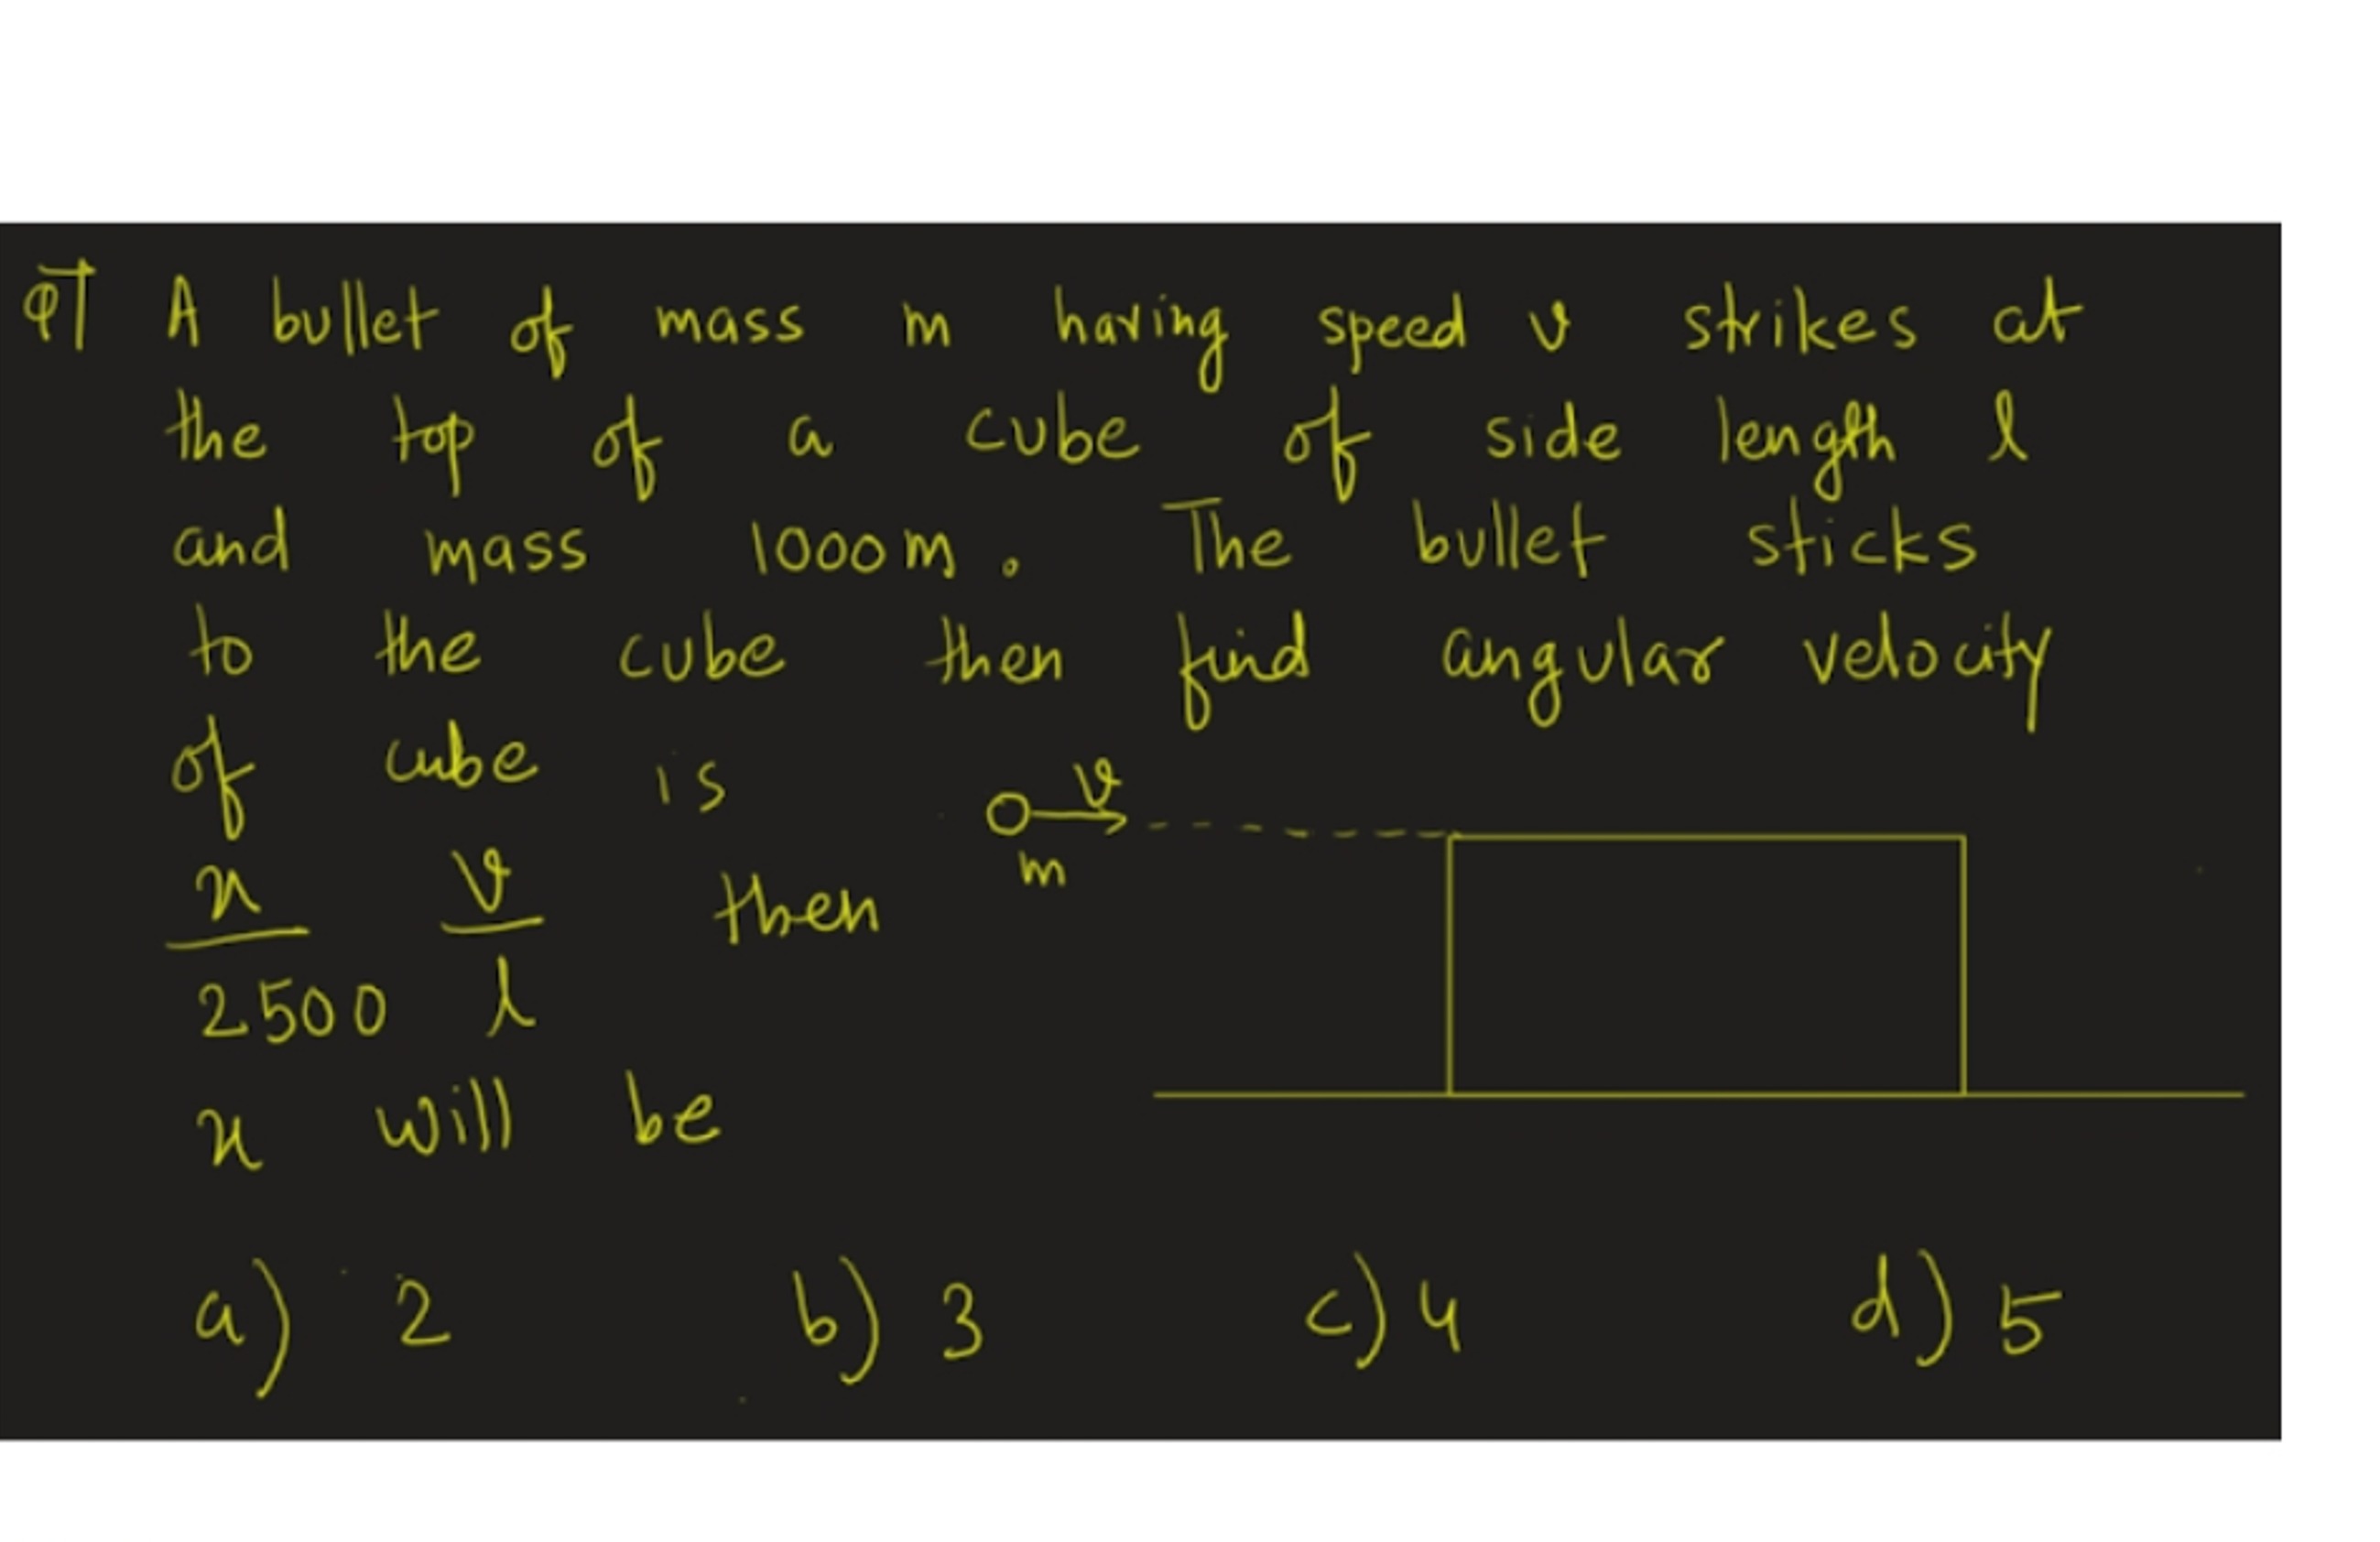 Q1 A bullet of mass m having speed v strikes at
the top of a cube of side length l
and mass 1000m. The bullet sticks
to the cube then find angular velocity
of cube is
v
m
x/2500 v/l then
x will be
a) 2 b) 3 c) 4 d) 5